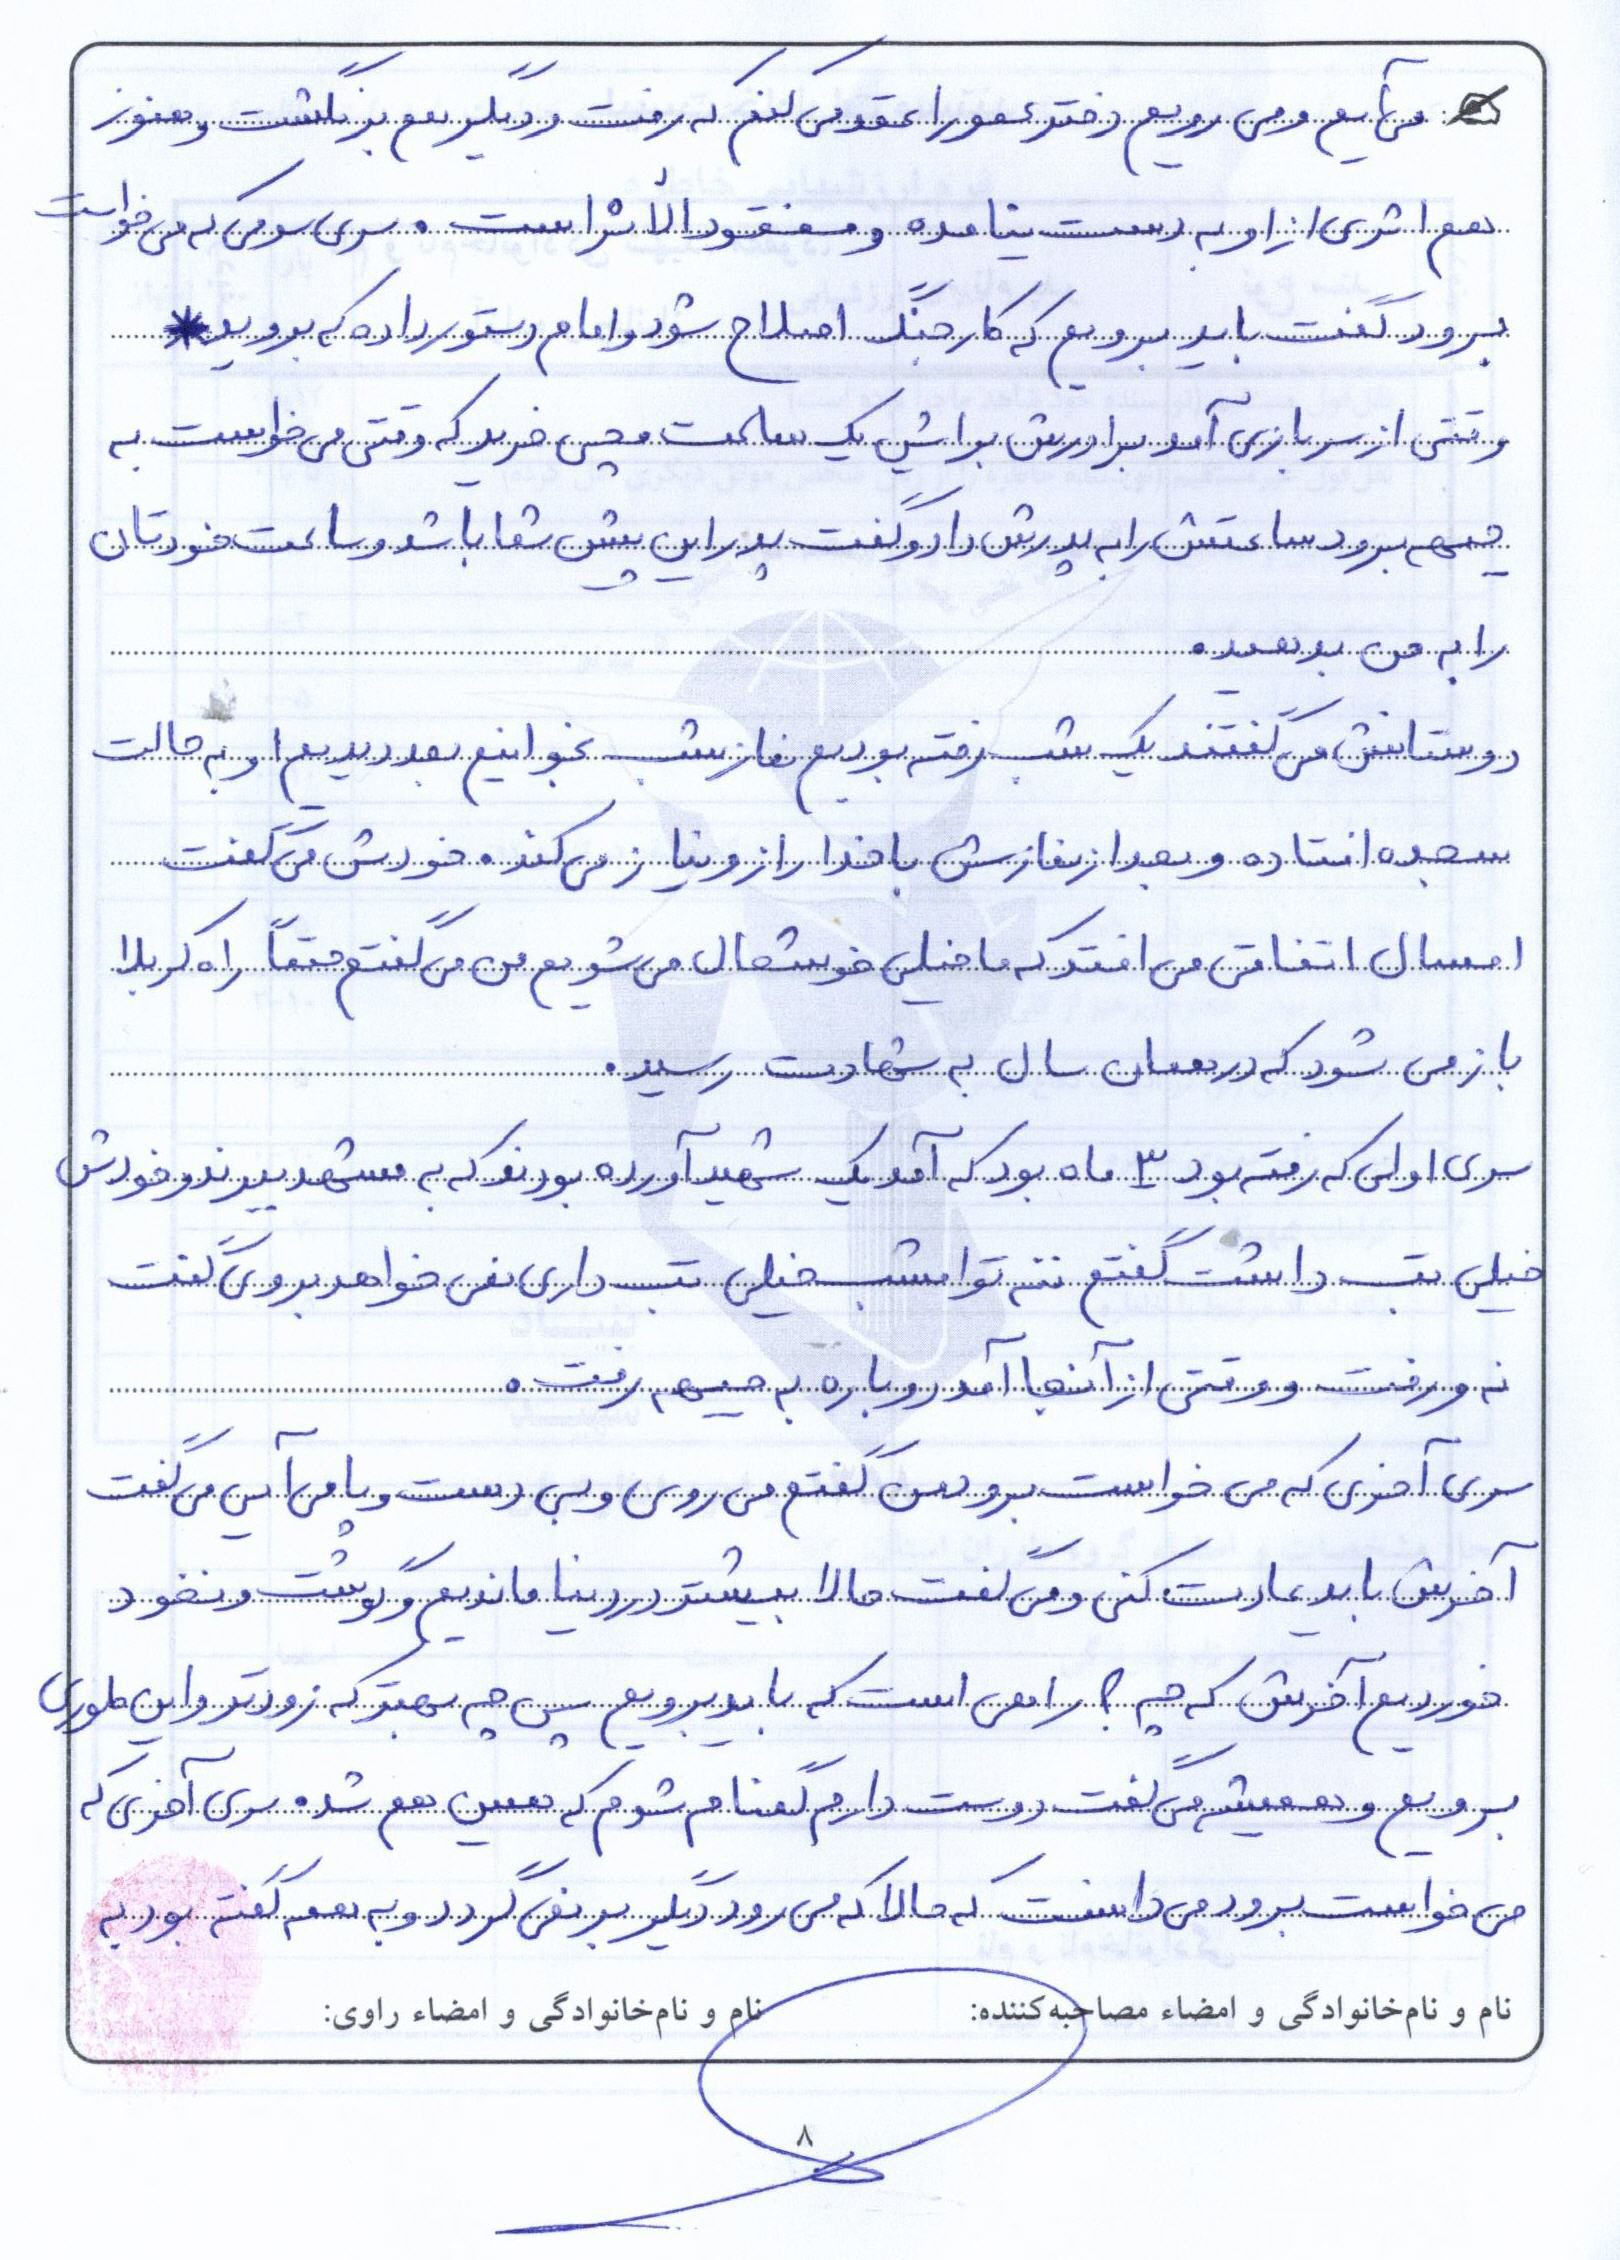 می‌آیم و می رویم دختر عمو را عقد می کنم که رفت و دیگر هم برنگشت و هنوز
هم اثری از او به دست نیامده و مفقودالأثر است. سری سومی که می خواست
برود گفت باید برویم که کار جنگ اصلاح شود و امام دستور داده که بروید*
وقتی از سربازی آمد برادرش برایش یک ساعت مچی خرید که وقتی می خواست به
جبهه برود ساعتش را به پدرش داد و گفت پدر این پیش شما باشد و ساعت خودتان
را به من بدهید.
دوستانش می گفتند یک شب رفته بودیم نماز شب بخوانیم بعد دیدیم او به حالت
سجده افتاده و بعد از نمازش با خدا راز و نیاز می کند. خودش می گفت
امسال اتفاقی می افتد که ما خیلی خوشحال می شویم من می گفتم حتماً راه کربلا
باز می شود که در همان سال به شهادت رسید.
سری اولی که رفته بود ۳ ماه بود که آمد یک شهید آورده بودند که به مشهد ببرند و خودش
خیلی تب داشت گفتم ننه تو امشب خیلی تب داری نمی خواهد بروی گفت
نه و رفت و وقتی از آنجا آمد دوباره به جبهه رفت.
سری آخری که می خواست برود من گفتم می روی و بی دست و پا می آیی می گفت
آخرش باید عادت کنی و می گفت حالا بیشتر در دنیا ماندیم و گوشت و نخود
خوردیم آخرش که چه؟ راهی است که باید برویم پس چه بهتر که زودتر و این طوری
برویم و همیشه می گفت دوست دارم گمنام شوم که همین هم شد. سری آخری که
می خواست برود می دانست که حالا که می رود دیگر بر نمی گردد و به همه گفته بود به
نام و نام‌خانوادگی و امضاء مصاحبه‌کننده: نام و نام‌خانوادگی و امضاء راوی:
۸